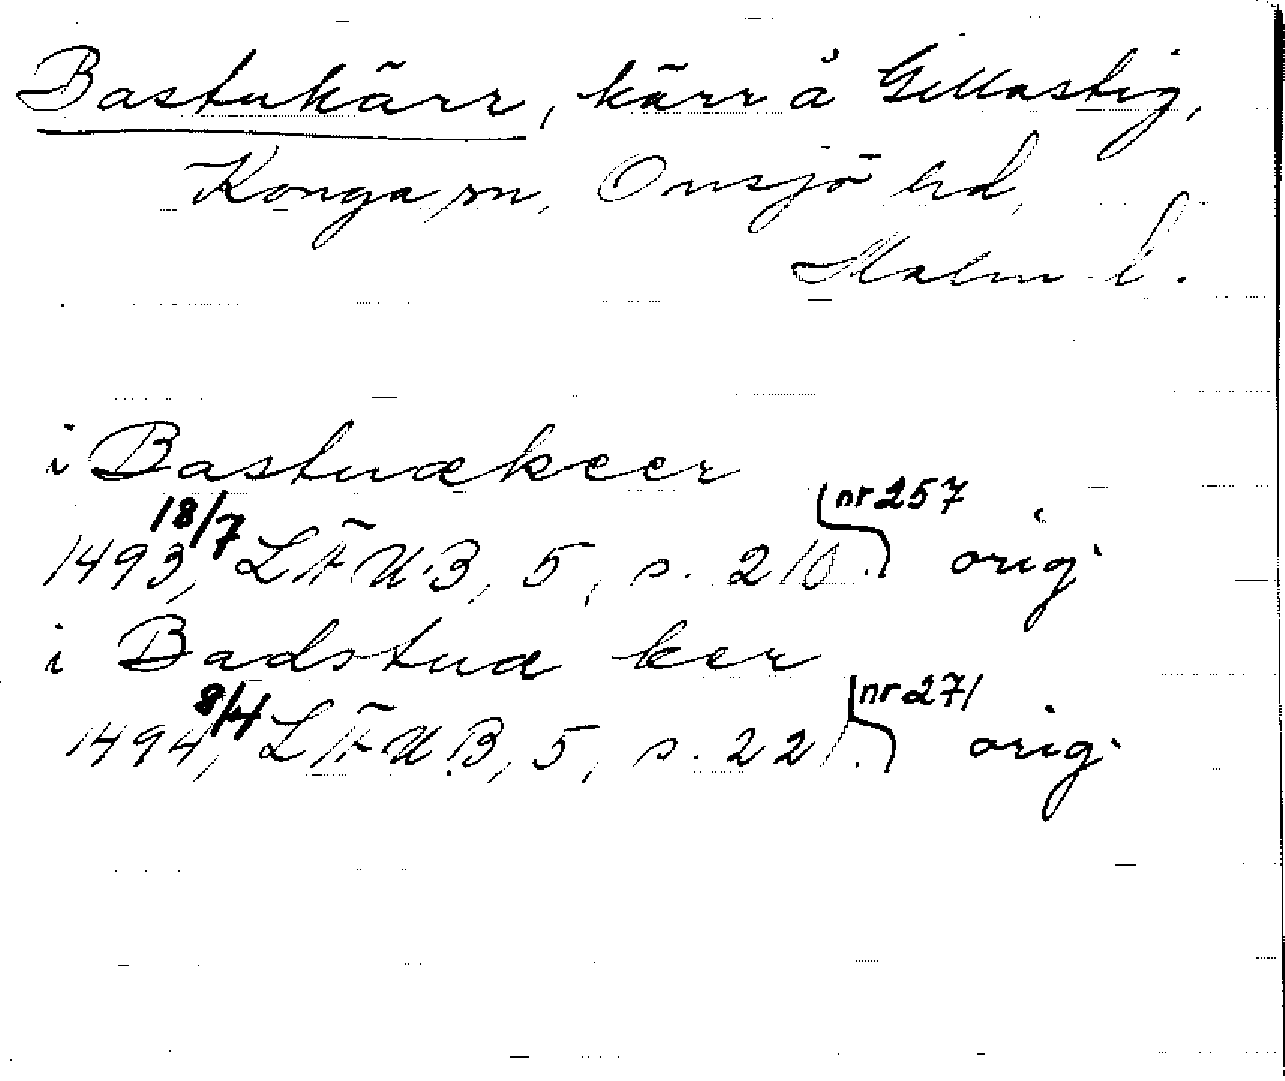 Bastukärr, kärr å Gillastig,
Konga sn, Onsjö hd,
Malm. l.
i Bastuækeer
1493 18/7, LÄUB, 5, s. 210. nr 257 orig.
i Badstuæ ker
1494 8/4, LÄUB, 5, s. 221. nr 271 orig.